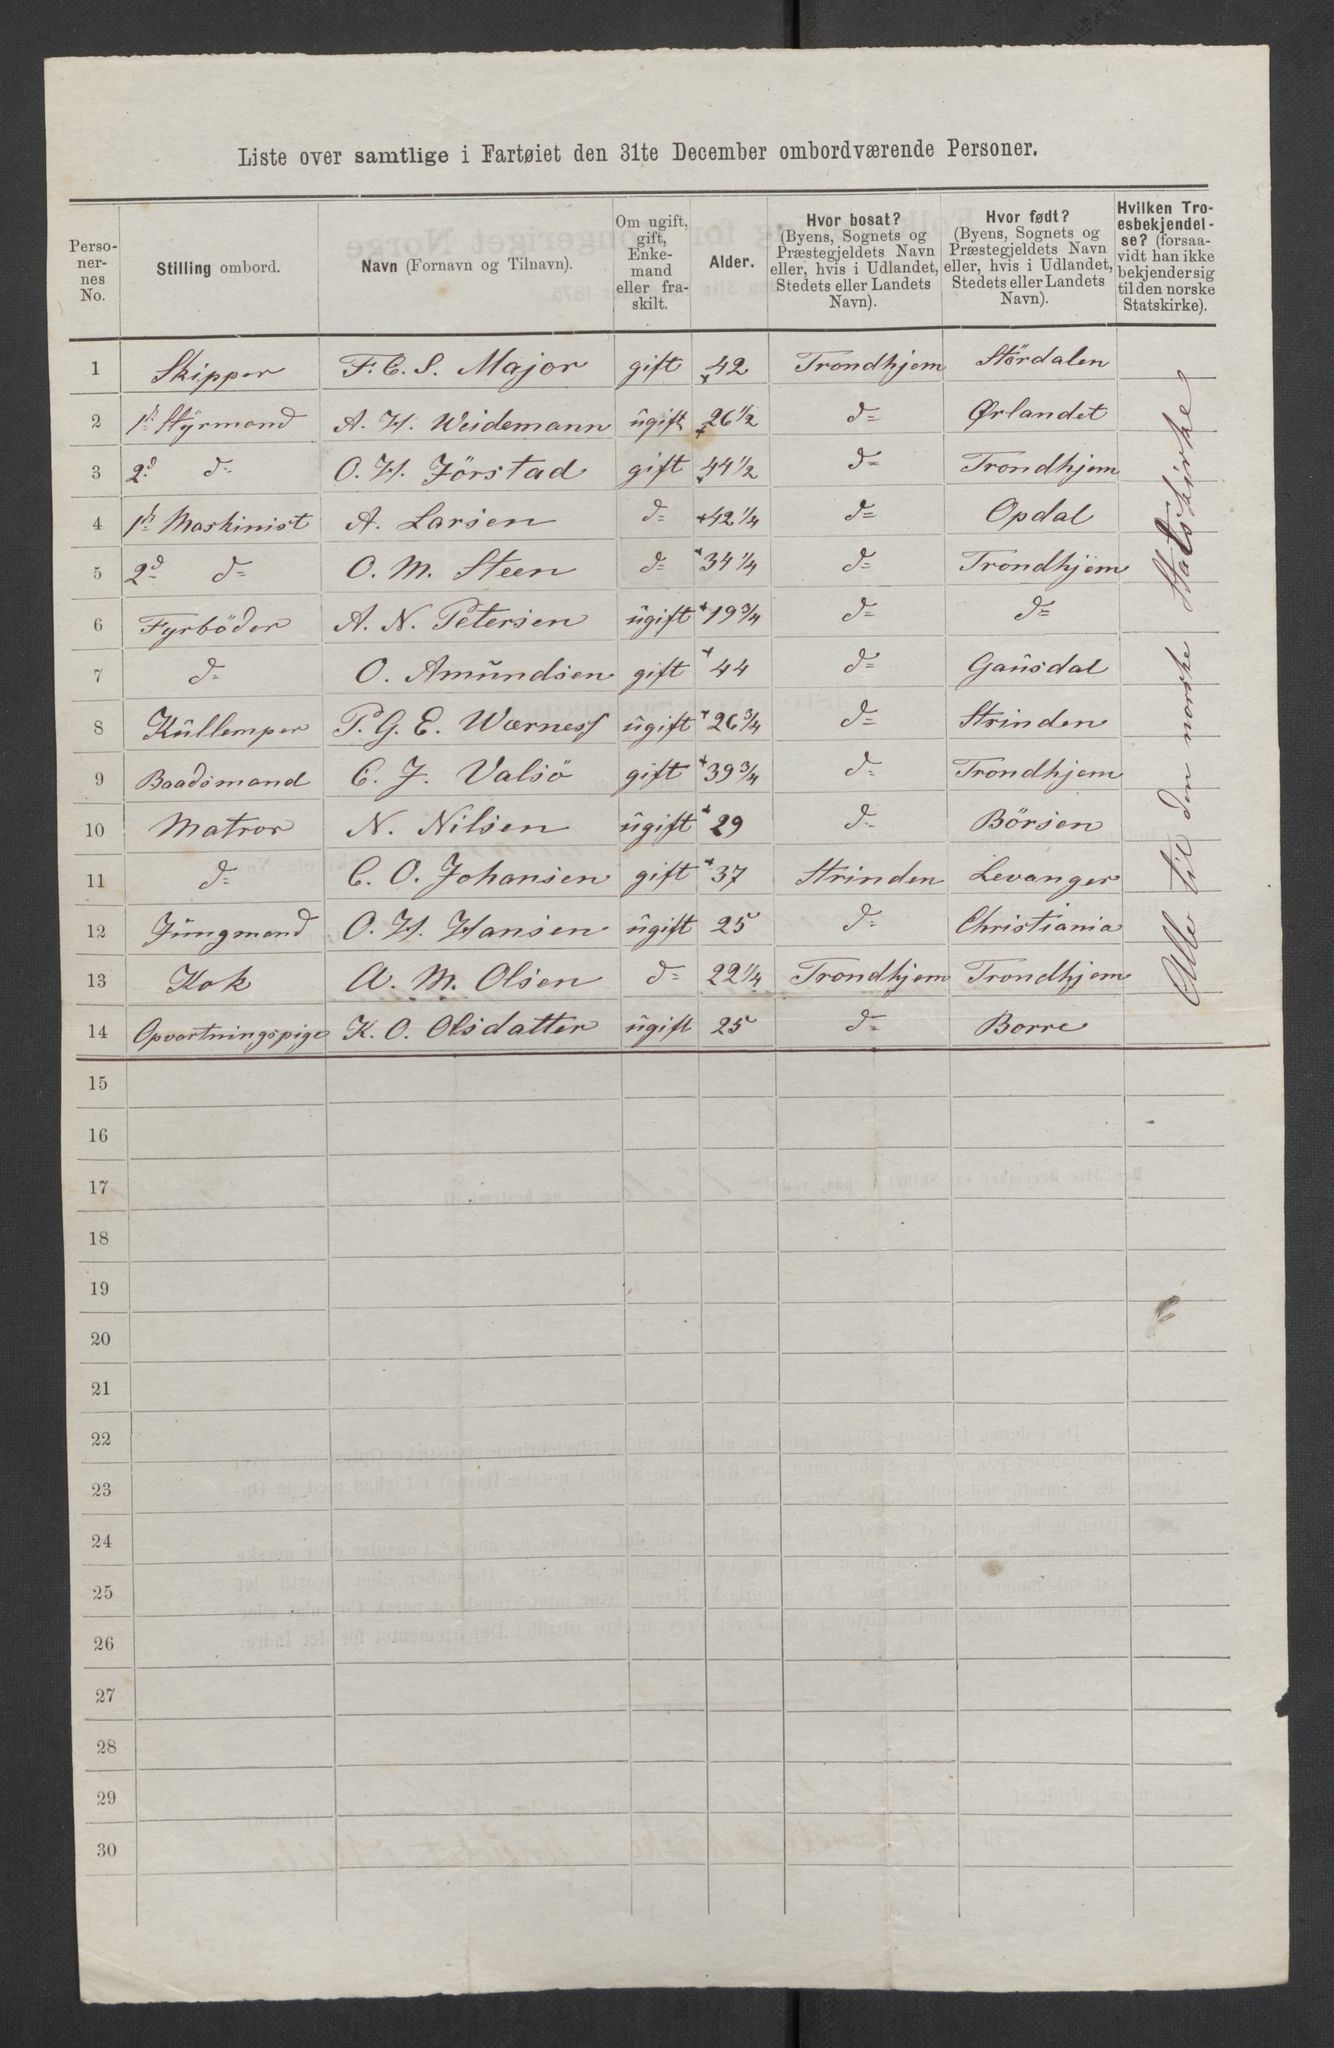 Liste over samtlige i Fartøiet den 31te December ombordværende Personer.
Perso-
ner-
nes
No.
Stilling ombord.
Navn (Fornavn og Tilnavn).
Om ugift,
gift,
Enke-
mand
eller fra-
skilt.
Alder.
Hvor bosat?
(Byens, Sognets og
Præstegjeldets Navn
eller, hvis i Udlandet,
Stedets eller Landets
Navn).
Hvor født?
(Byens, Sognets og
Præstegjeldets Navn
eller, hvis i Udlandet,
Stedets eller Landets
Navn).
Hvilken Tro-
esbekjendel-
se? (forsaa-
vidt han ikke
bekjender sig
til den norske
Statskirke).
1 Skipper F. C. S. Major gift 42 Trondhjem Stördalen
2 1st Styrmand A. H. Weidemann ugift 26 1/2 do Ørlandet
3 2d do O. H. Jörstad gift 44 1/2 do Trondhjem
4 1st Maskinist A. Larsen do 42 1/4 do Opdal
5 2d do O. M. Steen do 34 1/4 do Trondhjem
6 Fyrböder A. N. Petersen ugift 19 3/4 do do
7 do O. Amundsen gift 44 do Gausdal
8 Kullemper P. G. E. Wærness ugift 26 3/4 do Strinden
9 Baadsmand C. J. Valsö gift 39 3/4 do Trondhjem
10 Matros N. Nilsen ugift 29 do Börsen
11 do C. O. Johansen gift 37 Strinden Levanger
12 Jungmand O. H. Hansen ugift 25 do Christiania
13 Kok A. M. Olsen do 22 1/4 Trondhjem Trondhjem
14 Opvartningspige K. O. Olsdatter ugift 25 do Borre
Alle til den norske Statskirke
15
16
17
18
19
20
21
22
23
24
25
26
27
28
29
30